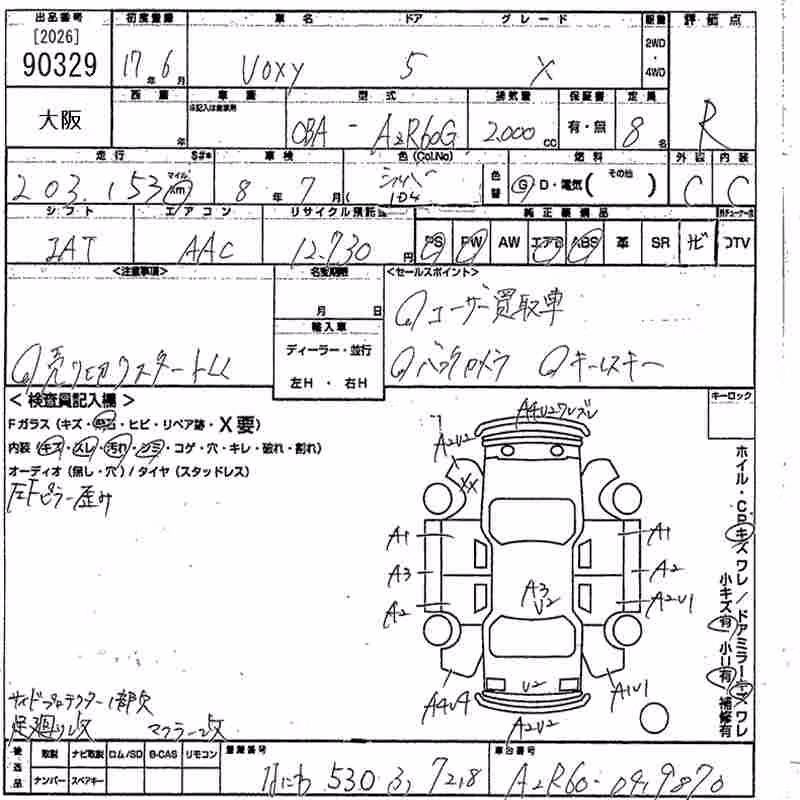 出品番号 初度登録 車名 ドア グレード 駆動 評価点
[2026]
90329 17年6月 VOXY 5 X 2WD・4WD R
西暦 車歴 型式 排気量 保証書 定員
大阪 年 CBA - AZR60G 2,000cc 有・無 8名
走行 S#* 車検 色(Col.No) 燃料 外装 内装
203,153 マイル Km 8年7月( シルバー 1D4 色替 G・D・電気( その他 ) C C
シフト エアコン リサイクル預託金 純正装備品
IAT AAC 12,730円 PS PW AW エアB ABS 革 SR ナビ TV
<注意事項> 名変期限 <セールスポイント>
月 日 ユーザー買取車
輸入車
ディーラー・並行 バックカメラ キーレスキー
売り切りスタート
左H・右H
< 検査員記入欄 > キーロック
Fガラス(キズ・飛石・ヒビ・リペア跡・X要)
内装(キズ・スレ・汚れ・シミ・コゲ・穴・キレ・破れ・割れ)
オーディオ(無し・穴)/タイヤ(スタッドレス)
左Fピラー歪み
A4U2ワレズレ
A2U2
XX
A1 A1
A3 A2
A2 A2U1
A3
U2
A4U4 U2 A1U1
A2U2
ホイル・CPキズワレ/ドアミラーキズワレ
小キズ有 小U有 補修有
サイドプロテクター1部欠
足廻り改 マフラー改
後送品 取説 ナビ取説 ロム/SD B-CAS リモコン 登録番号 車台番号
ナンバー スペアキー なにわ 530 む 7218 AZR60-0419870